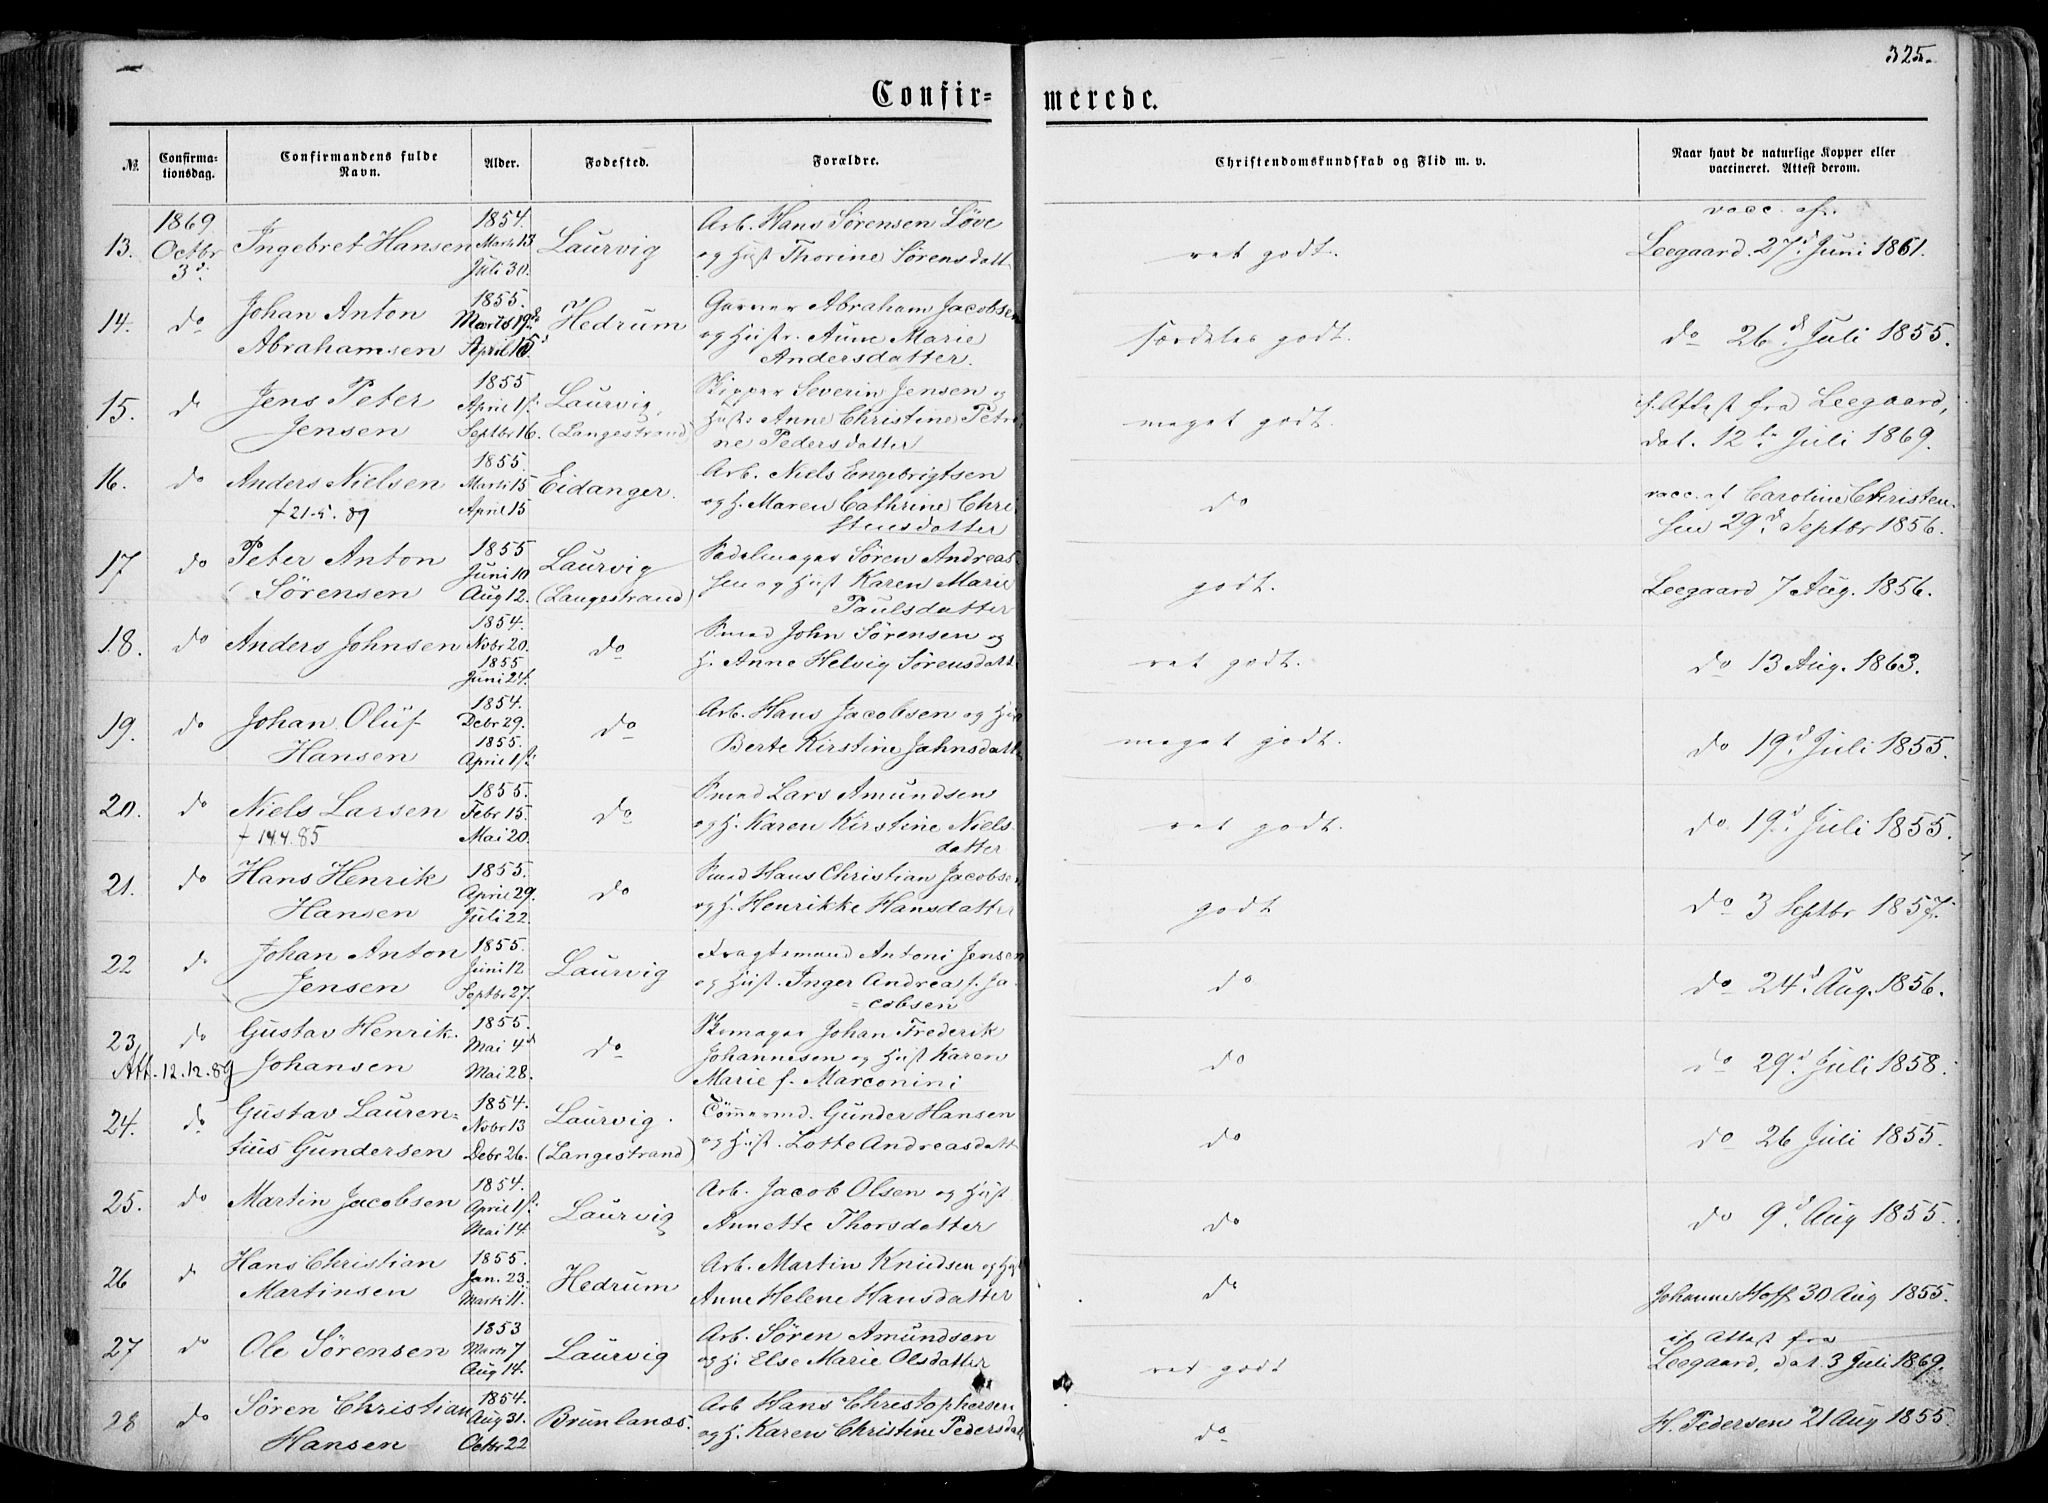 325.
Confir=merede.
№ Confirma-tionsdag. Confirmandens fulde Navn. Alder. Fodested. Forældre. Christendomskundskab og Flid m. v. Naar havt de naturlige Kopper eller vaccineret. Attest derom.
1869 1854. Arb. Hans Sørensen Løve vacc. af
13. Octbr Ingebret Hansen Marts 13 Laurvig og Hust Thorine Sørensdatt ret godt. Leegaard. 27d Juni 1861.
3d. Juli 30.
Johan Anton 1855. Garver Abraham Jacobsen
14. do Marts 19 Hedrum og Hustr. Anne Marie særdeles godt. do 26d Juli 1855.
Abrahamsen April 15 Andersdatter.
Jens Peter 1855 Skipper Severin Jensen og
15. do April 1st Laurvig, Hustr Anne Christine Petri meget godt. if. Attest fra Leegaard,
Jensen Septbr 16. (Langestrand) ne Pedersdatter dat. 12te Juli 1869.
1855. Arb. Niels Engebrigtsen
16. do Anders Nielsen Marts 15 Eidanger. og H. Maren Cathrine Chri do vacc. af Caroline Christen
+ 21-5. 89 April 15 stensdatter sen 29d Septbr 1856.
Peter Anton 1855 Sadelmager Søren Andreas
17 do Juni 10 Laurvig sen og Hust Karen Marie godt. Leegaard 7 Aug. 1856.
Sørensen Aug 12. (Langestrand) Paulsdatter
1854.
18. do Anders Johnsen Novbr 20. do Smed John Sørensen og ret godt. do 13 Aug. 1863.
1855 H. Anne Helvig Sørensdatt
Juni 24.
1854.
19. do Johan Oluf Debr 29. do Arb. Hans Jacobsen og Hust meget godt. do 19d Juli 1855.
Hansen 1855. Berte Kirstine Jahnsdatt
April 1st
1855. Smed Lars Amundsen
20. do Niels Larsen Febr 15. do og H. Karen Kirstine Niels- ret godt. do 19d Juli 1855.
+ 14.4.85 Mai 20. datter
Hans Henrik 1855. Smed Hans Christian Jacobsen
21. do April 29. do godt do 3 Septbr 1857.
Hansen Juli 22. og H. Henrikke Hansdatter
Johan Anton 1855. Fragtemand Antoni Jensen
22 do Juni 12 Laurvig og Hust. Inger Andrea f. Ja- do do 24d Aug. 1856.
Jensen Septbr 27. cobsen
Gustav Henrik 1855. Skomager Johan Frederik
23, do Mai 4d do Johannesen og Hust Karen do do 29d Juli 1858.
Att. 12.12.89 Johansen Mai 28. Marie f. Marconini
Gustav Lauren= 1854. Tømmermd. Gunder Hansen
24. do Novbr 13 Laurvig. og Hust. Lotte Andreasdatt do do 26 Juli 1855.
tius Gundersen Debr 26. (Langestrand)
1854. Arb. Jacob Olsen og Hust
25. do Martin Jacobsen April 1st Laurvig Annette Thorsdatter do do 9d Aug 1855.
Mai 14.
Hans Christian 1855. Arb. Martin Knudsen og Hust
26 do Jan. 23. Hedrum do Johanne Hoff 30 Aug 1855.
Martinsen Marts 11. Anne Helene Hansdatter
1853 Arb. Søren Amundsen if Attest fra
27 do Ole Sørensen Marts 7 Laurvig og H. Else Marie Olsdatter ret godt Leegaard, dat. 3 Juli 1869.
Aug 14.
Søren Christian 1854. Arb Hans Christophersen
28 do Aug 31. Brunlanæs. og H. Karen Christine Pedersdatt do H. Pedersen 21 Aug 1855.
Hansen Octbr 22